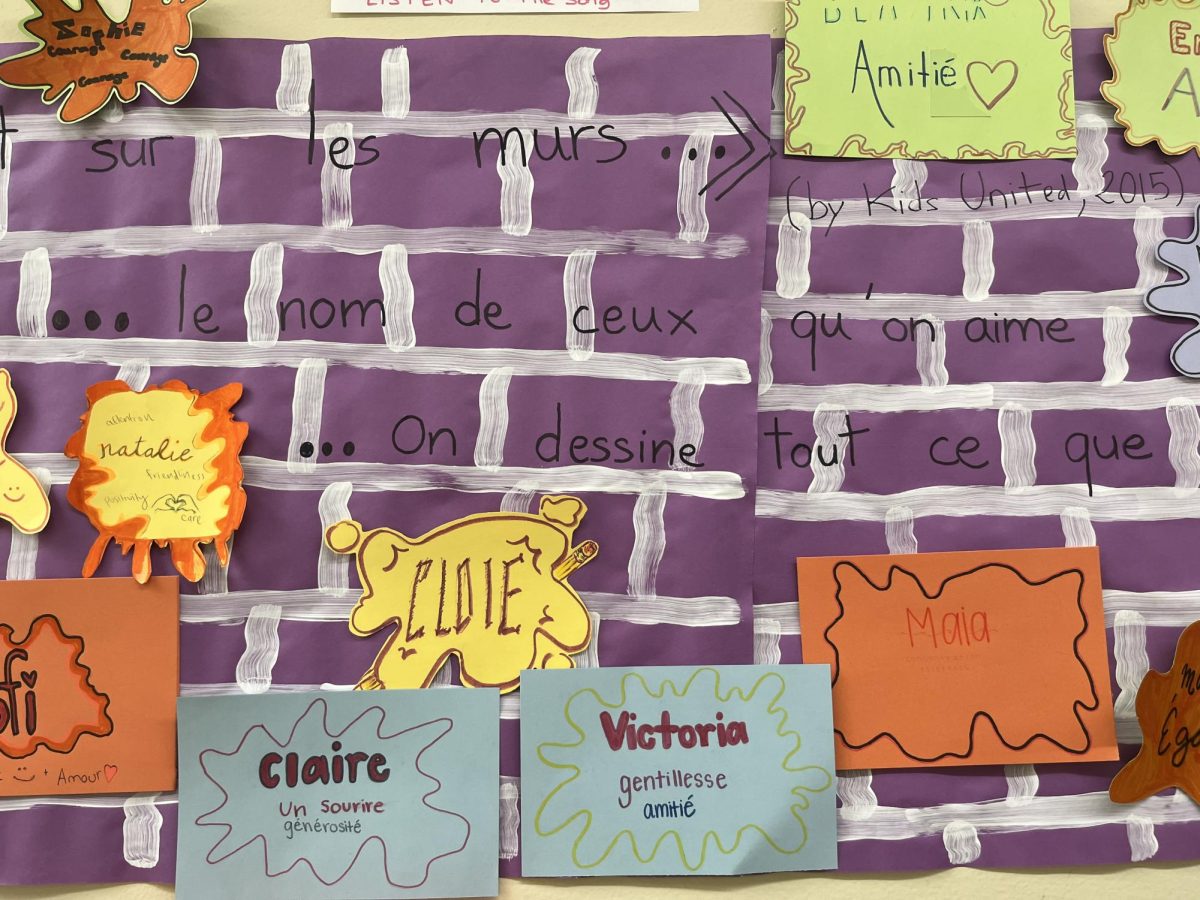 LISTEN to the song
Sophie
Courage
Courage
Courage
Amitié
sur les murs ...
(by Kids United, 2015)
... le nom de ceux qu'on aime
... On dessine tout ce que
attention
natalie
friendliness
positivity
care
CLOIE
Maia
+ Amour
Claire
un sourire
générosité
Victoria
gentillesse
amitié